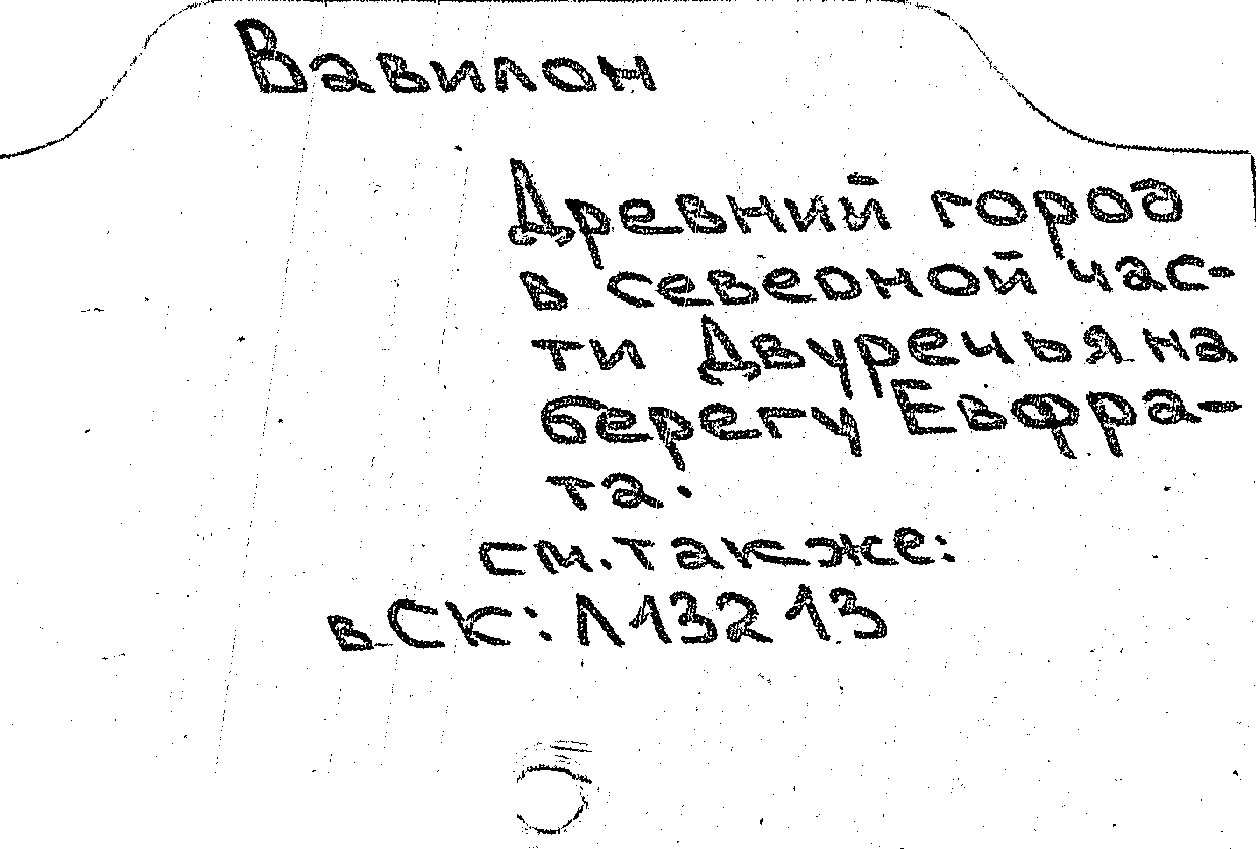 Вавилон
Древний город
в северной час-
ти Двуречья на
берегу Евфра-
та.
см. также:
в СК: Л13213